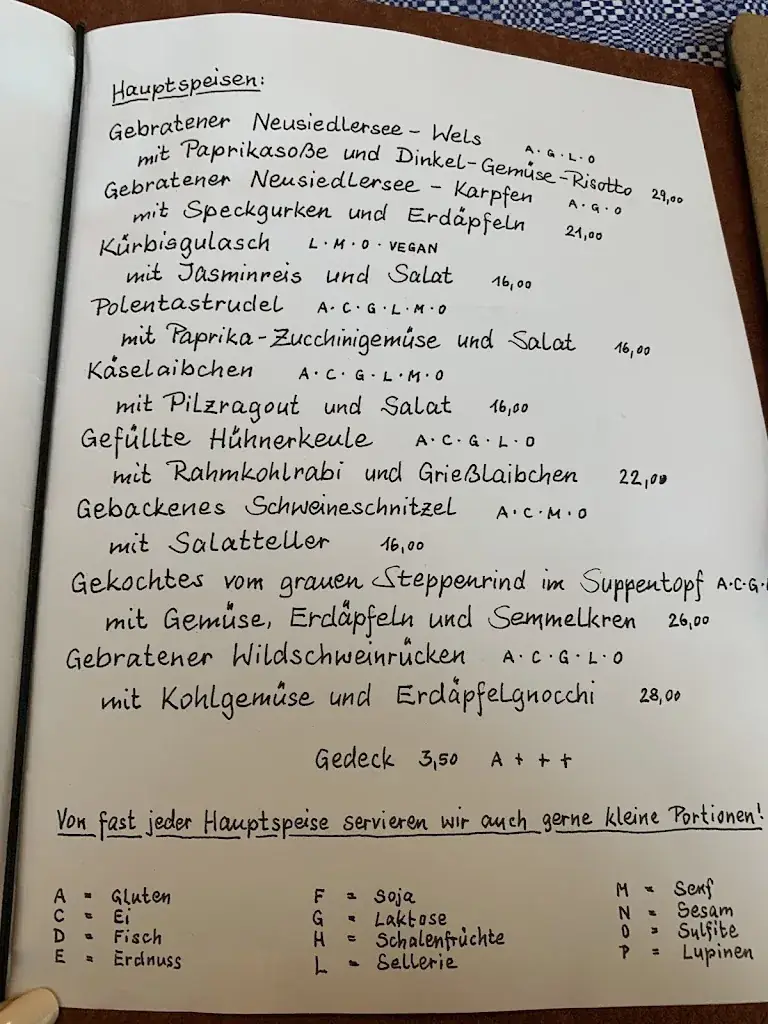 Hauptspeisen:
Gebratener Neusiedlersee - Wels A·G·L·O
mit Paprikasoße und Dinkel-Gemüse-Risotto 29,00
Gebratener Neusiedlersee - Karpfen A·G·O
mit Speckgurken und Erdäpfeln 21,00
Kürbisgulasch L·M·O·VEGAN
mit Jasminreis und Salat 16,00
Polentastrudel A·C·G·L·M·O
mit Paprika-Zucchinigemüse und Salat 16,00
Käselaibchen A·C·G·L·M·O
mit Pilzragout und Salat 16,00
Gefüllte Hühnerkeule A·C·G·L·O
mit Rahmkohlrabi und Grießlaibchen 22,00
Gebackenes Schweineschnitzel A·C·M·O
mit Salatteller 16,00
Gekochtes vom grauen Steppenrind im Suppentopf A·C·G·
mit Gemüse, Erdäpfeln und Semmelkren 26,00
Gebratener Wildschweinrücken A·C·G·L·O
mit Kohlgemüse und Erdäpfelgnocchi 28,00
Gedeck 3,50 A + + +
Von fast jeder Hauptspeise servieren wir auch gerne kleine Portionen!
A = Gluten F = Soja M = Senf
C = Ei G = Laktose N = Sesam
D = Fisch H = Schalenfrüchte O = Sulfite
E = Erdnuss L = Sellerie P = Lupinen